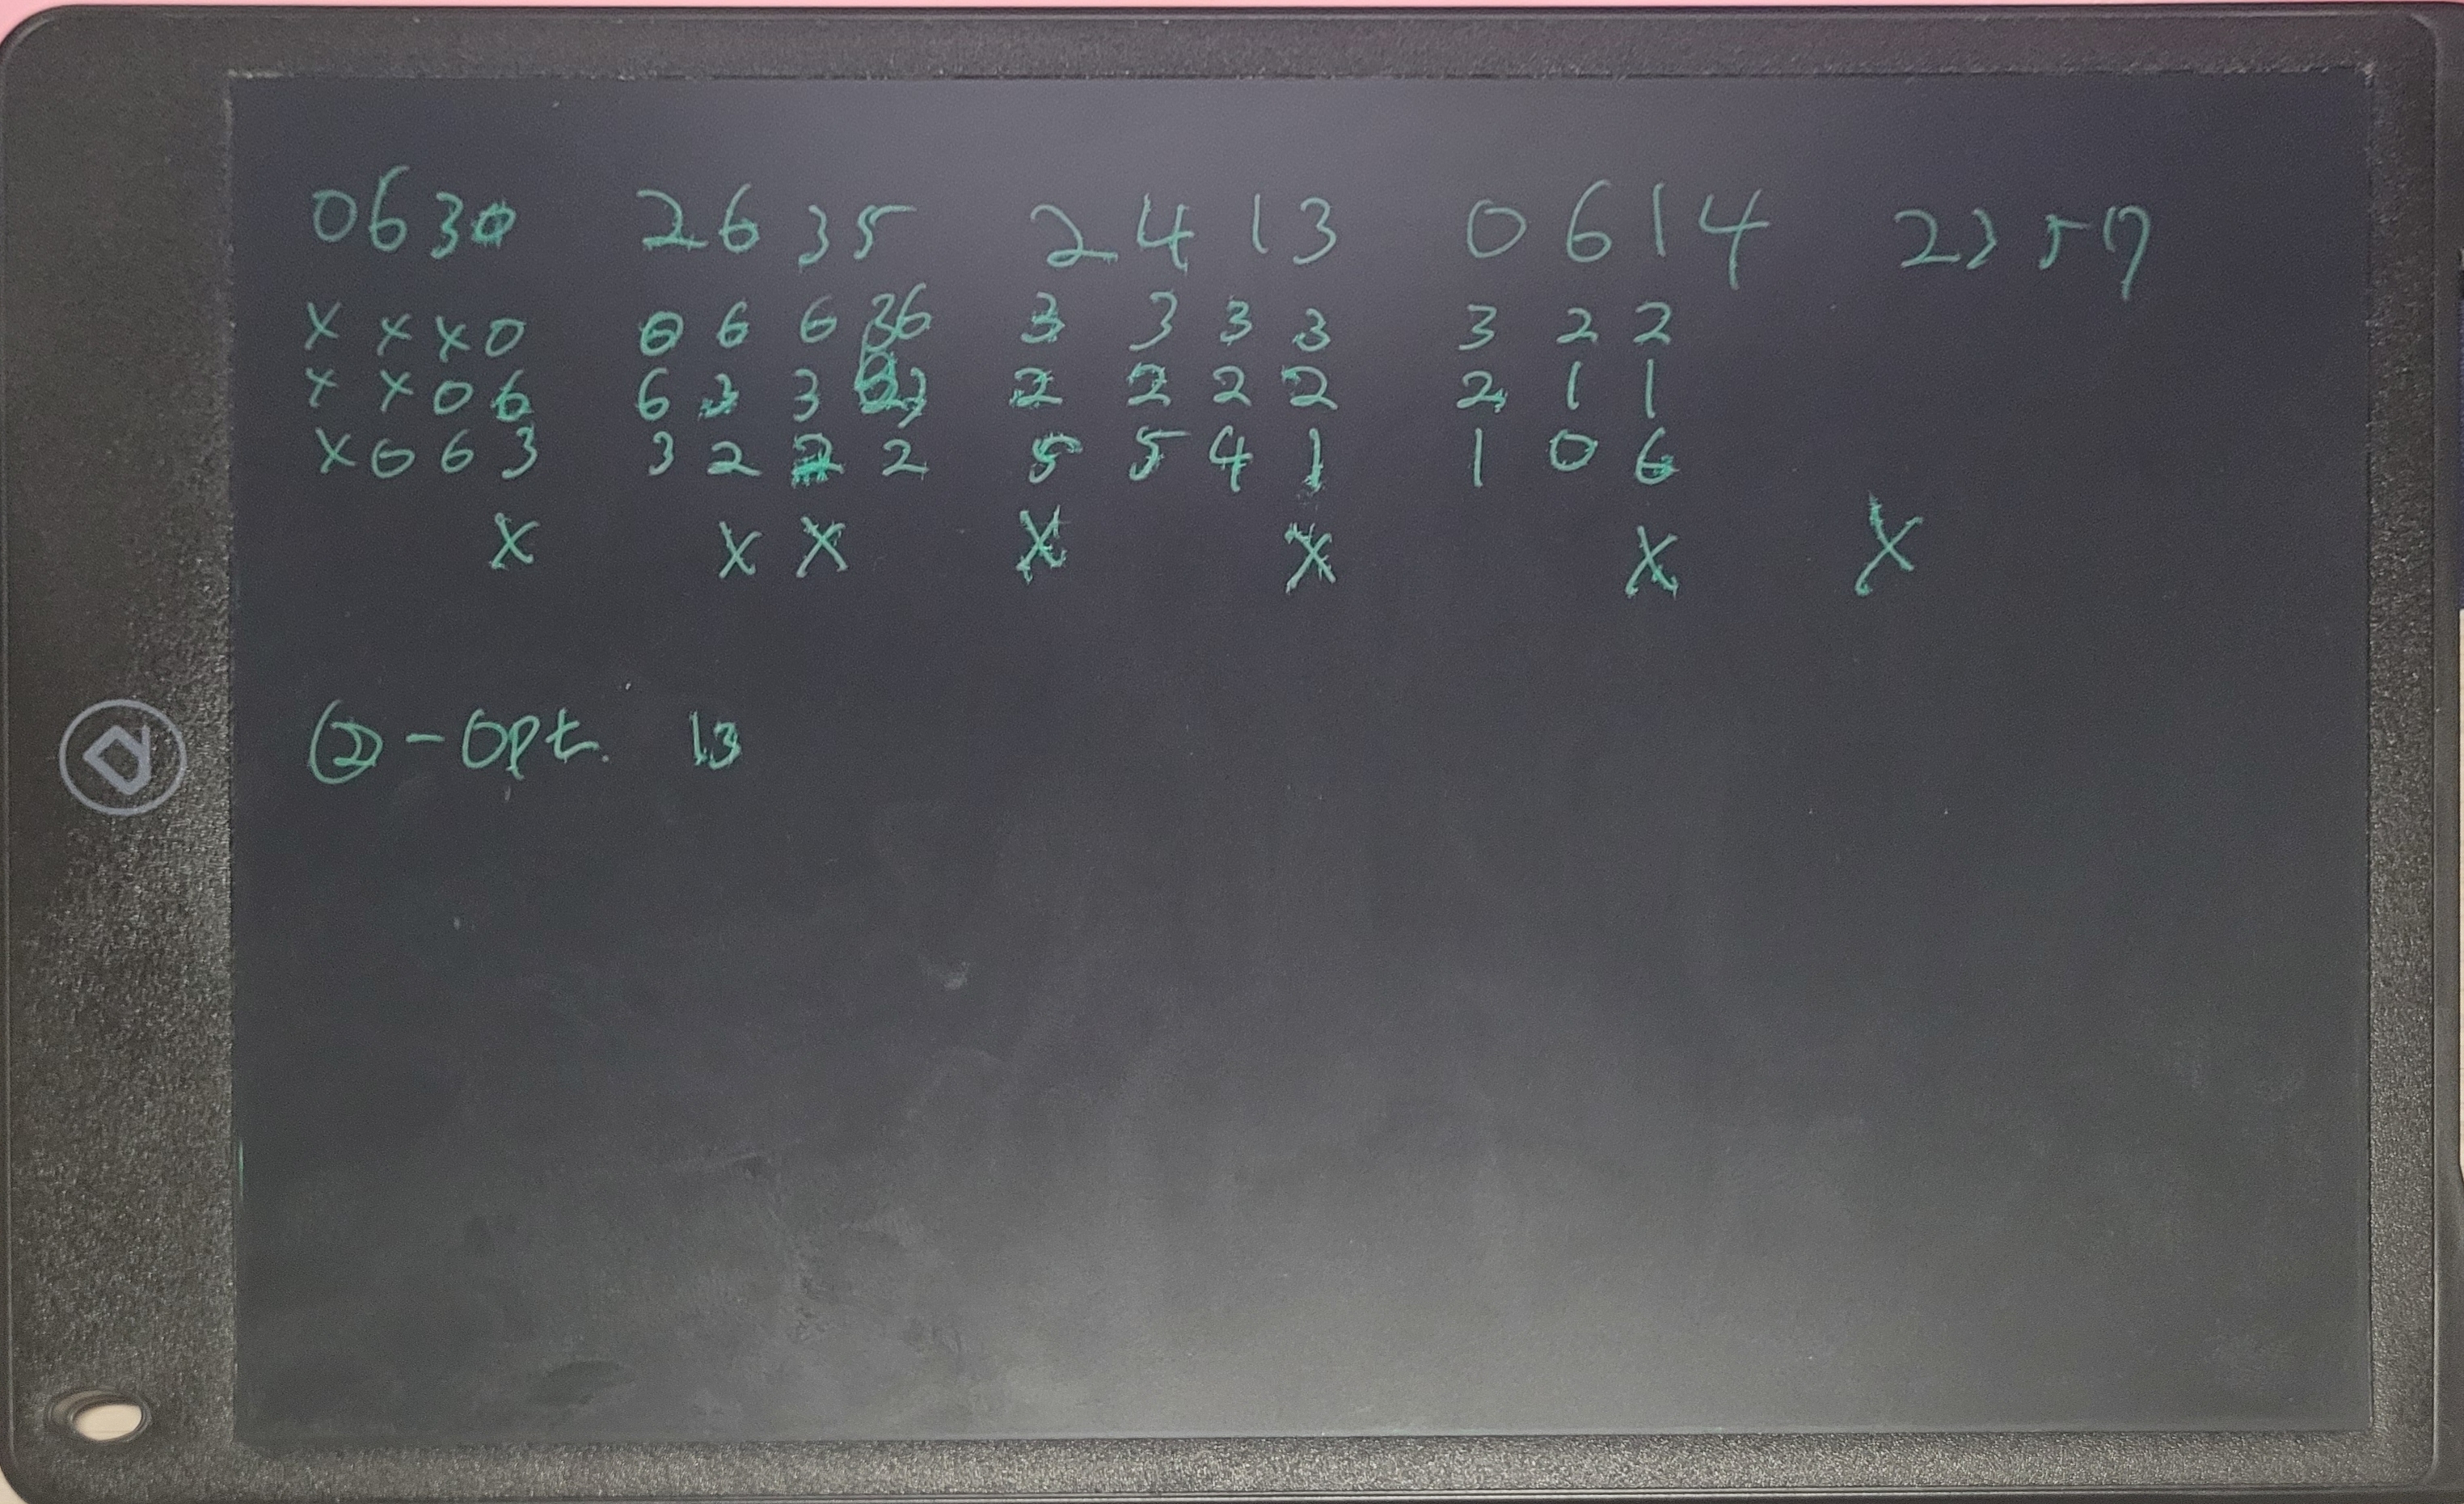 0630 2635 2413 0614 2357
x x x 0 0 6 6 36 3 3 3 3 3 2 2
x x 0 6 6 3 3 2 2 2 2 2 1 1
x 0 6 3 3 2 2 2 5 5 4 1 1 0 6
x x x x x x x
② - Opt. 13